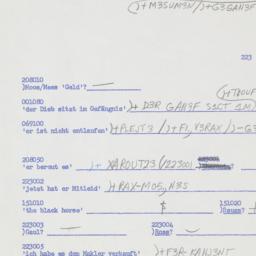 )+M3SUM3N/)+G3GANЗF
223
208010
)Moos/Mees 'Geld'?
)+TROUF
001080
'der Dieb sitzt im Gefängnis' )+D3R GAN3F S1CT 1M)
069100
'er ist nicht entlaufen' )+PLEJT3/)+F1,V3RAX/)-G3
208030
'er bereut es' )+ XAROUTZ3/223001
223002
'jetzt hat er Mitleid' )+RAX-MO5,N3S
151010 151020
'the black horse' )Reuss?
223003 223004
)Gaul? )Ross?
223005
'ich habe es dem Makler verkauft' )+F3R-KAHJ3NT